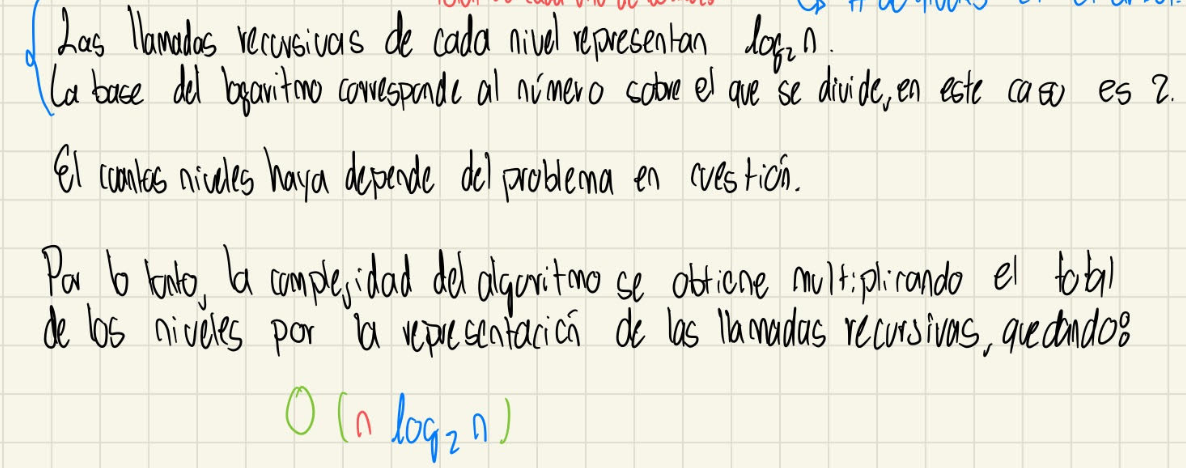 Las llamadas recursivas de cada nivel representan log₂ n.
La base del logaritmo corresponde al número sobre el que se divide, en este caso es 2.
El cuantos niveles haya depende del problema en cuestión.
Por lo tanto, la complejidad del algoritmo se obtiene multiplicando el total
de los niveles por la representación de las llamadas recursivas, quedando:
O (n log₂ n)